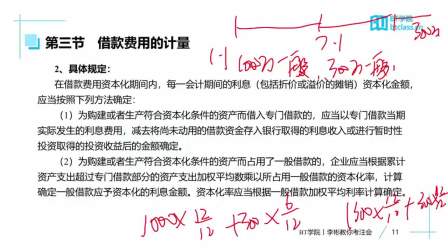 BT学院
btclass.cn
第三节 借款费用的计量
7.1
2、具体规定：
在借款费用资本化期间内，每一会计期间的利息（包括折价或溢价的摊销）资本化金额，
应当按照下列方法确定：
（1）为购建或者生产符合资本化条件的资产而借入专门借款的，应当以专门借款当期
实际发生的利息费用，减去将尚未动用的借款资金存入银行取得的利息收入或进行暂时性
投资取得的投资收益后的金额确定。
（2）为购建或者生产符合资本化条件的资产而占用了一般借款的，企业应当根据累计
资产支出超过专门借款部分的资产支出加权平均数乘以所占用一般借款的资本化率，计算
确定一般借款应予资本化的利息金额。资本化率应当根据一般借款加权平均利率计算确定。
1000×12/12 +300×6/12
BT学院 | 李彬教你考注会
11